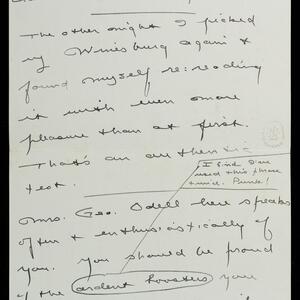 The other night I picked
up Winesburg again &
found myself re-reading
it with even more
pleasure than at first.
That's an authentic
test.
I find I've
used this phrase
twice. Punk!
Mrs. Geo. Odell here speaks
often & enthusiastically of
you. You should be proud
of the ardent boosters you